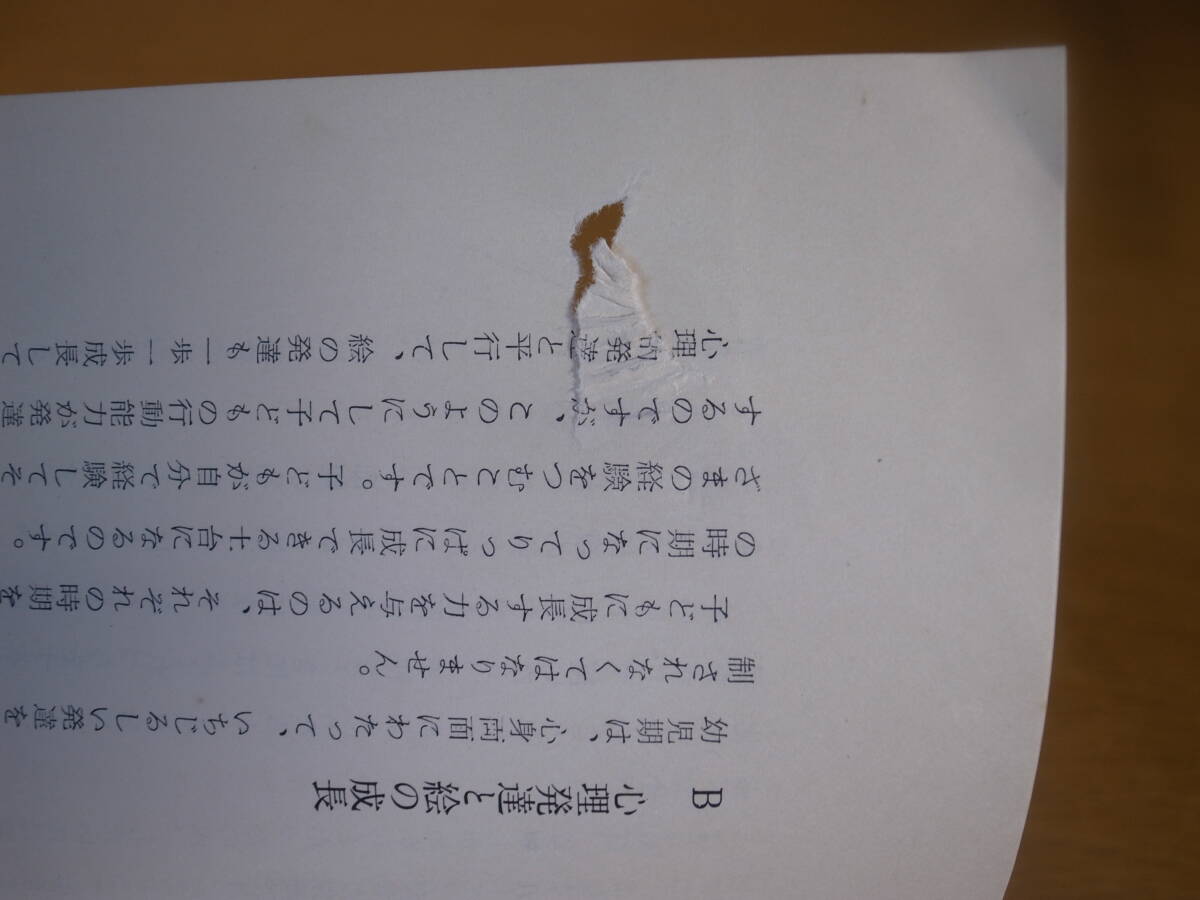 B 心理発達と絵の成長
幼児期は、心身両面にわたって、いちじるしい発達を
制されなくてはなりません。
子どもに成長する力を与えるのは、それぞれの時期を
の時期になってりっぱに成長できる土台になるのです。
ざまの経験をつむことです。子どもが自分で経験してそ
するのですが、このようにして子どもの行動能力が発達
心理的発達と平行して、絵の発達も一歩一歩成長して